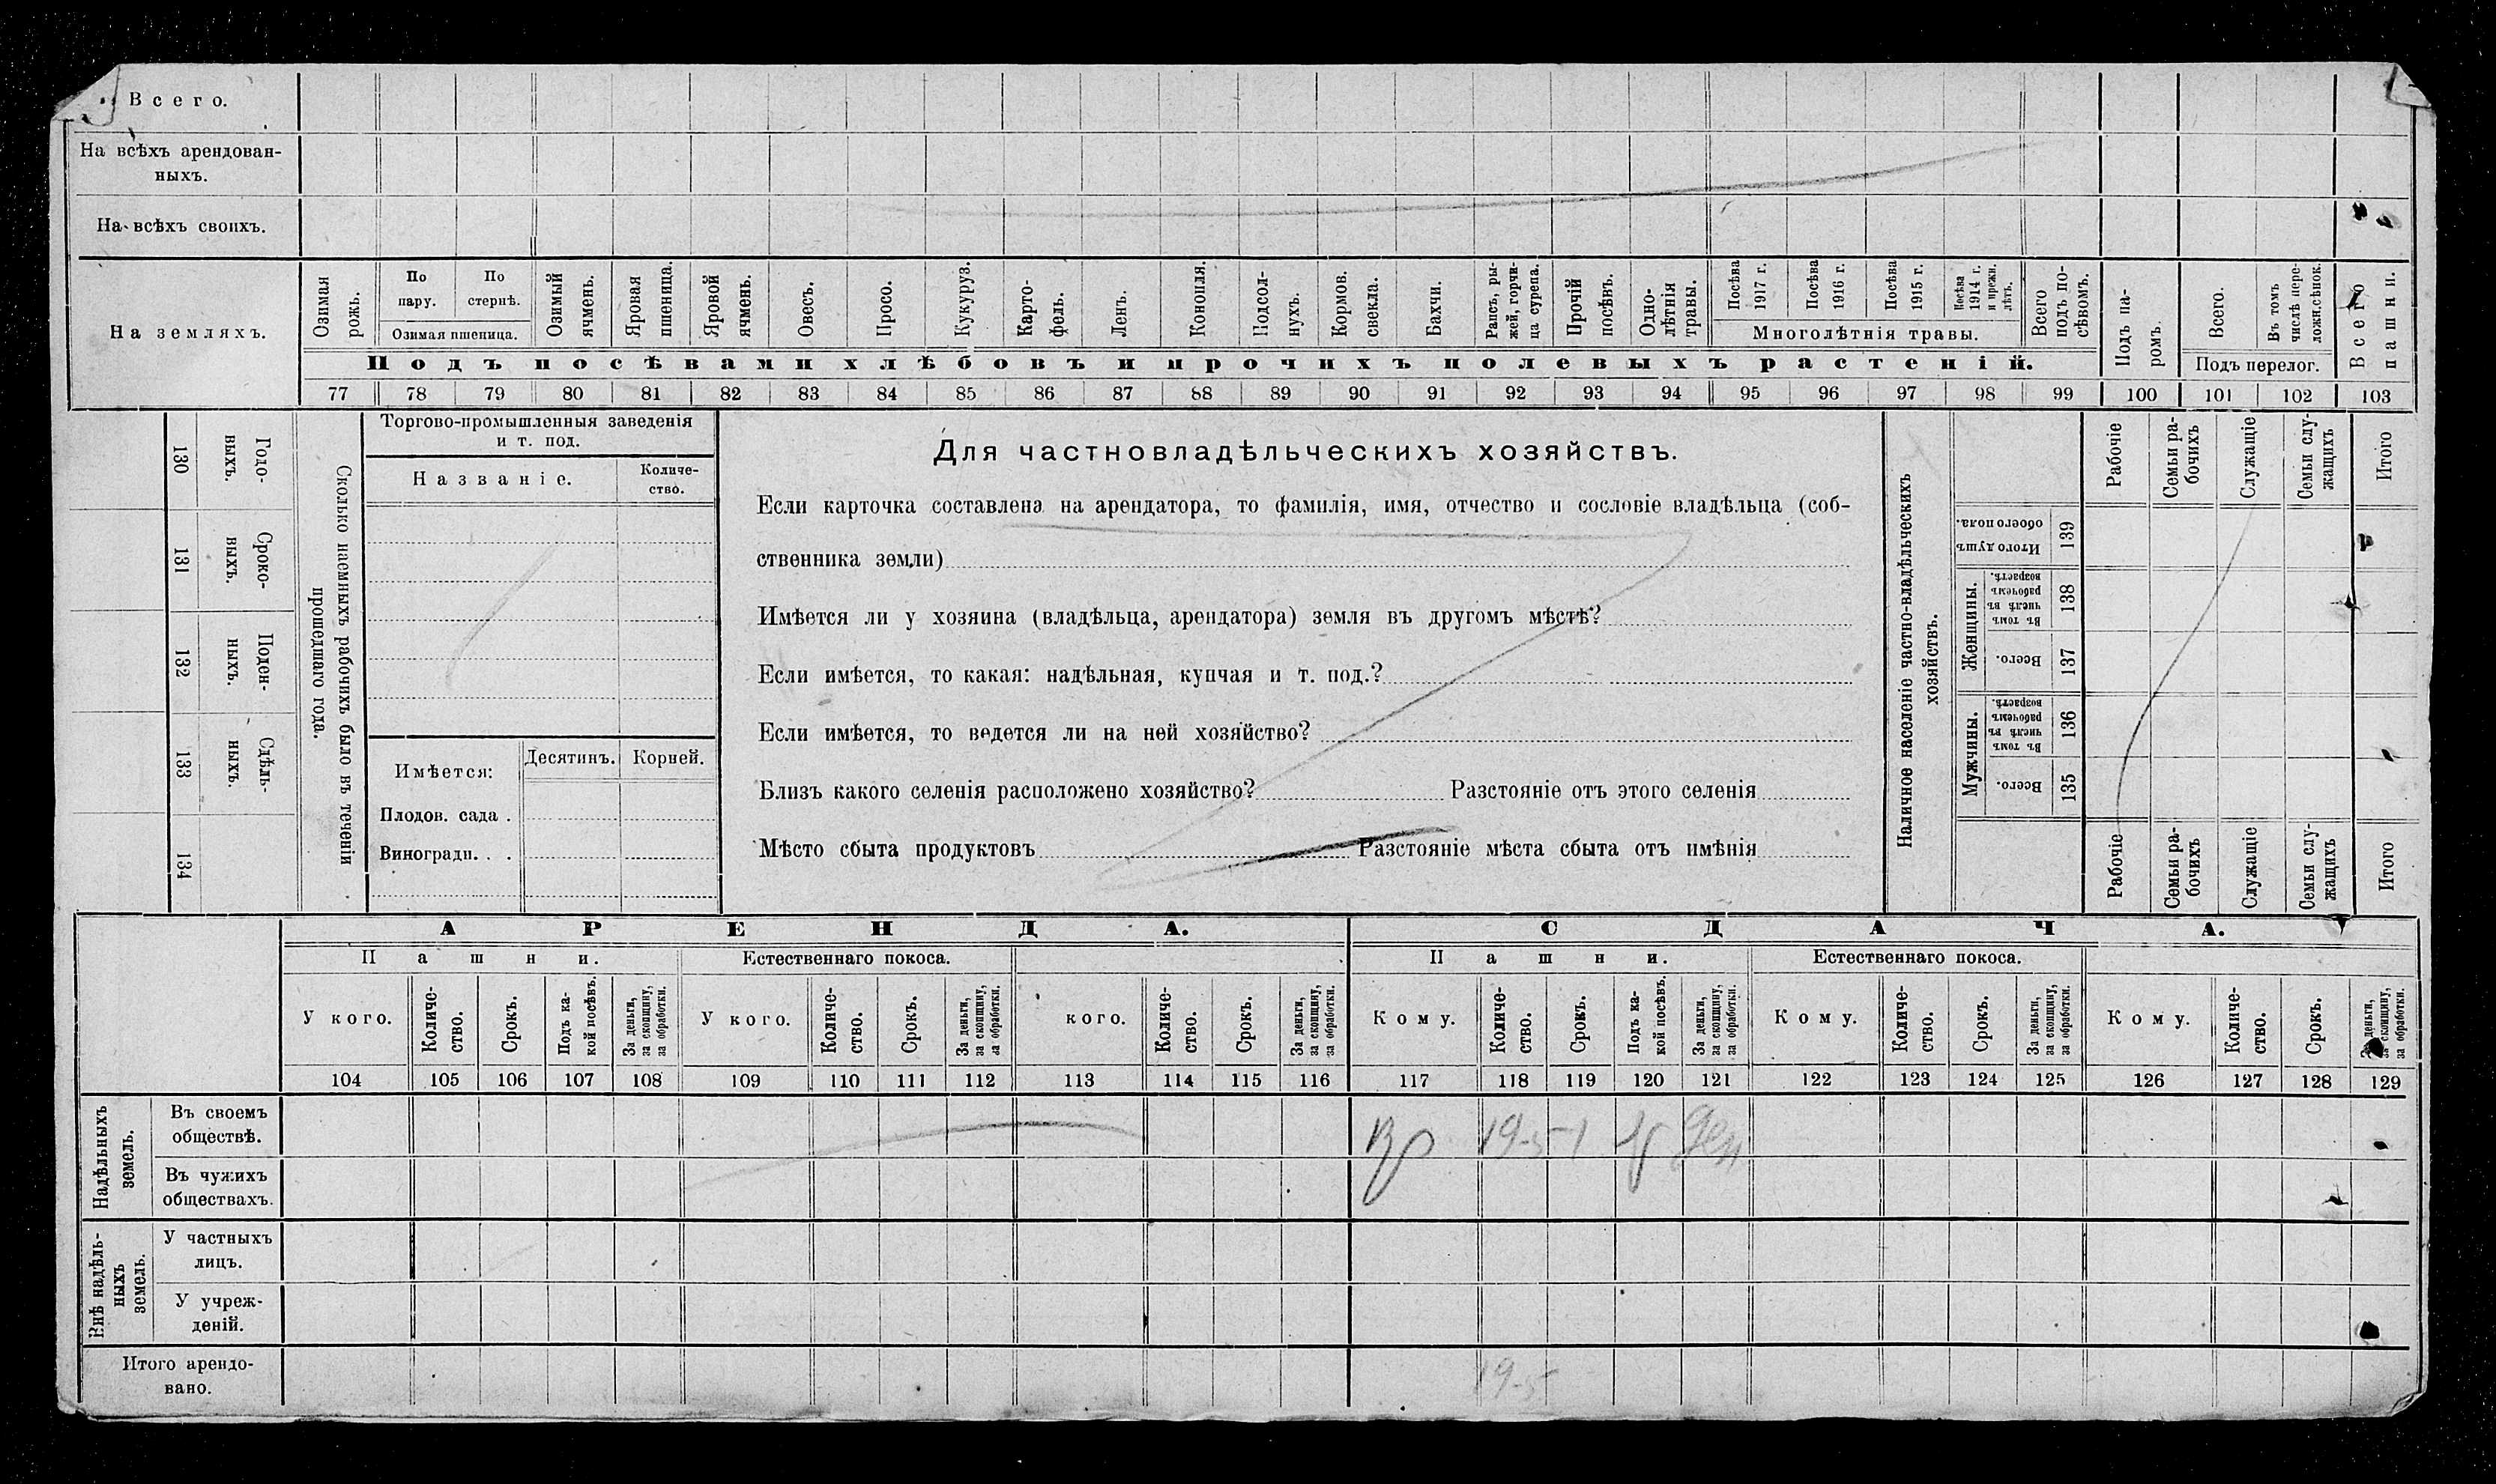 Всего.
На всѣхъ арендован-
ныхъ.
На всѣхъ своихъ.
На земляхъ.
Озимая рожь.
По пару.
По стернѣ.
Озимая пшеница.
Озимый ячмень.
Яровая пшеница.
Яровой ячмень.
Овесъ.
Просо.
Кукуруз.
Карто-
фель.
Ленъ.
Конопля.
Подсол-
нухъ.
Кормов.
свекла.
Бахчи.
Рапсъ, ры-
жей, горчи-
ца сурепа.
Прочій
посѣвъ.
Одно-
лѣтнія
травы.
Посѣва
1917 г.
Посѣва
1916 г.
Посѣва
1915 г.
Посѣва
1914 г.
и прежн.
лѣтъ.
Многолѣтнія травы.
Всего
подъ по-
сѣвомъ.
Подъ па-
ромъ.
Всего.
Въ томъ
числѣ пере-
ложн.сѣнок.
Подъ перелог.
Всего
пашни.
Подъ посѣвами хлѣбовъ и прочихъ полевыхъ растеній.
77 78 79 80 81 82 83 84 85 86 87 88 89 90 91 92 93 94 95 96 97 98 99 100 101 102 103
130 Годо-
выхъ.
131 Сроко-
выхъ.
132 Поден-
ныхъ.
133 Сдѣль-
ныхъ.
134
Сколько наемныхъ рабочихъ было въ теченіи
прошедшаго года.
Торгово-промышленныя заведенія
и т. под.
Названіе.
Количе-
ство.
Имѣется:
Десятинъ.
Корней.
Плодов. сада .
Виноградн. . .
Для частновладѣльческихъ хозяйствъ.
Если карточка составлена на арендатора, то фамилія, имя, отчество и сословіе владѣльца (соб-
ственника земли)
Имѣется ли у хозяина (владѣльца, арендатора) земля въ другомъ мѣстѣ?
Если имѣется, то какая: надѣльная, купчая и т. под.?
Если имѣется, то ведется ли на ней хозяйство?
Близъ какого селенія расположено хозяйство? Разстояніе отъ этого селенія
Мѣсто сбыта продуктовъ Разстояніе мѣста сбыта отъ имѣнія
Наличное населеніе частно-владѣльческихъ
хозяйствъ.
Рабочіе
Семьи ра-
бочихъ
Служащіе
Семьи слу-
жащихъ
Итого
Итого душъ
обоего пола.
139
Женщины.
Въ томъ
числѣ въ
рабочемъ
возрастѣ.
138
Всего.
137
Мужчины.
Въ томъ
числѣ въ
рабочемъ
возрастѣ.
136
Всего.
135
Рабочіе
Семьи ра-
бочихъ
Служащіе
Семьи слу-
жащихъ
Итого
АРЕНДА.
СДАЧА.
Пашни.
Естественнаго покоса.
Пашни.
Естественнаго покоса.
У кого.
Количе-
ство.
Срокъ.
Подъ ка-
кой посѣвъ.
За деньги,
за скопщину,
за обработки.
У кого.
Количе-
ство.
Срокъ.
За деньги,
за скопщину,
за обработки.
кого.
Количе-
ство.
Срокъ.
За деньги,
за скопщину,
за обработки.
Кому.
Количе-
ство.
Срокъ.
Подъ ка-
кой посѣвъ.
За деньги,
за скопщину,
за обработки.
Кому.
Количе-
ство.
Срокъ.
За деньги,
за скопщину,
за обработки.
Кому.
Количе-
ство.
Срокъ.
За деньги,
за скопщину,
за обработки.
104 105 106 107 108 109 110 111 112 113 114 115 116 117 118 119 120 121 122 123 124 125 126 127 128 129
Надѣльныхъ
земель.
Въ своемъ
обществѣ.
19-5 1 Ден
Въ чужихъ
обществахъ.
Внѣ надѣль-
ныхъ
земель.
У частныхъ
лицъ.
У учреж-
деній.
Итого арендо-
вано.
19-5